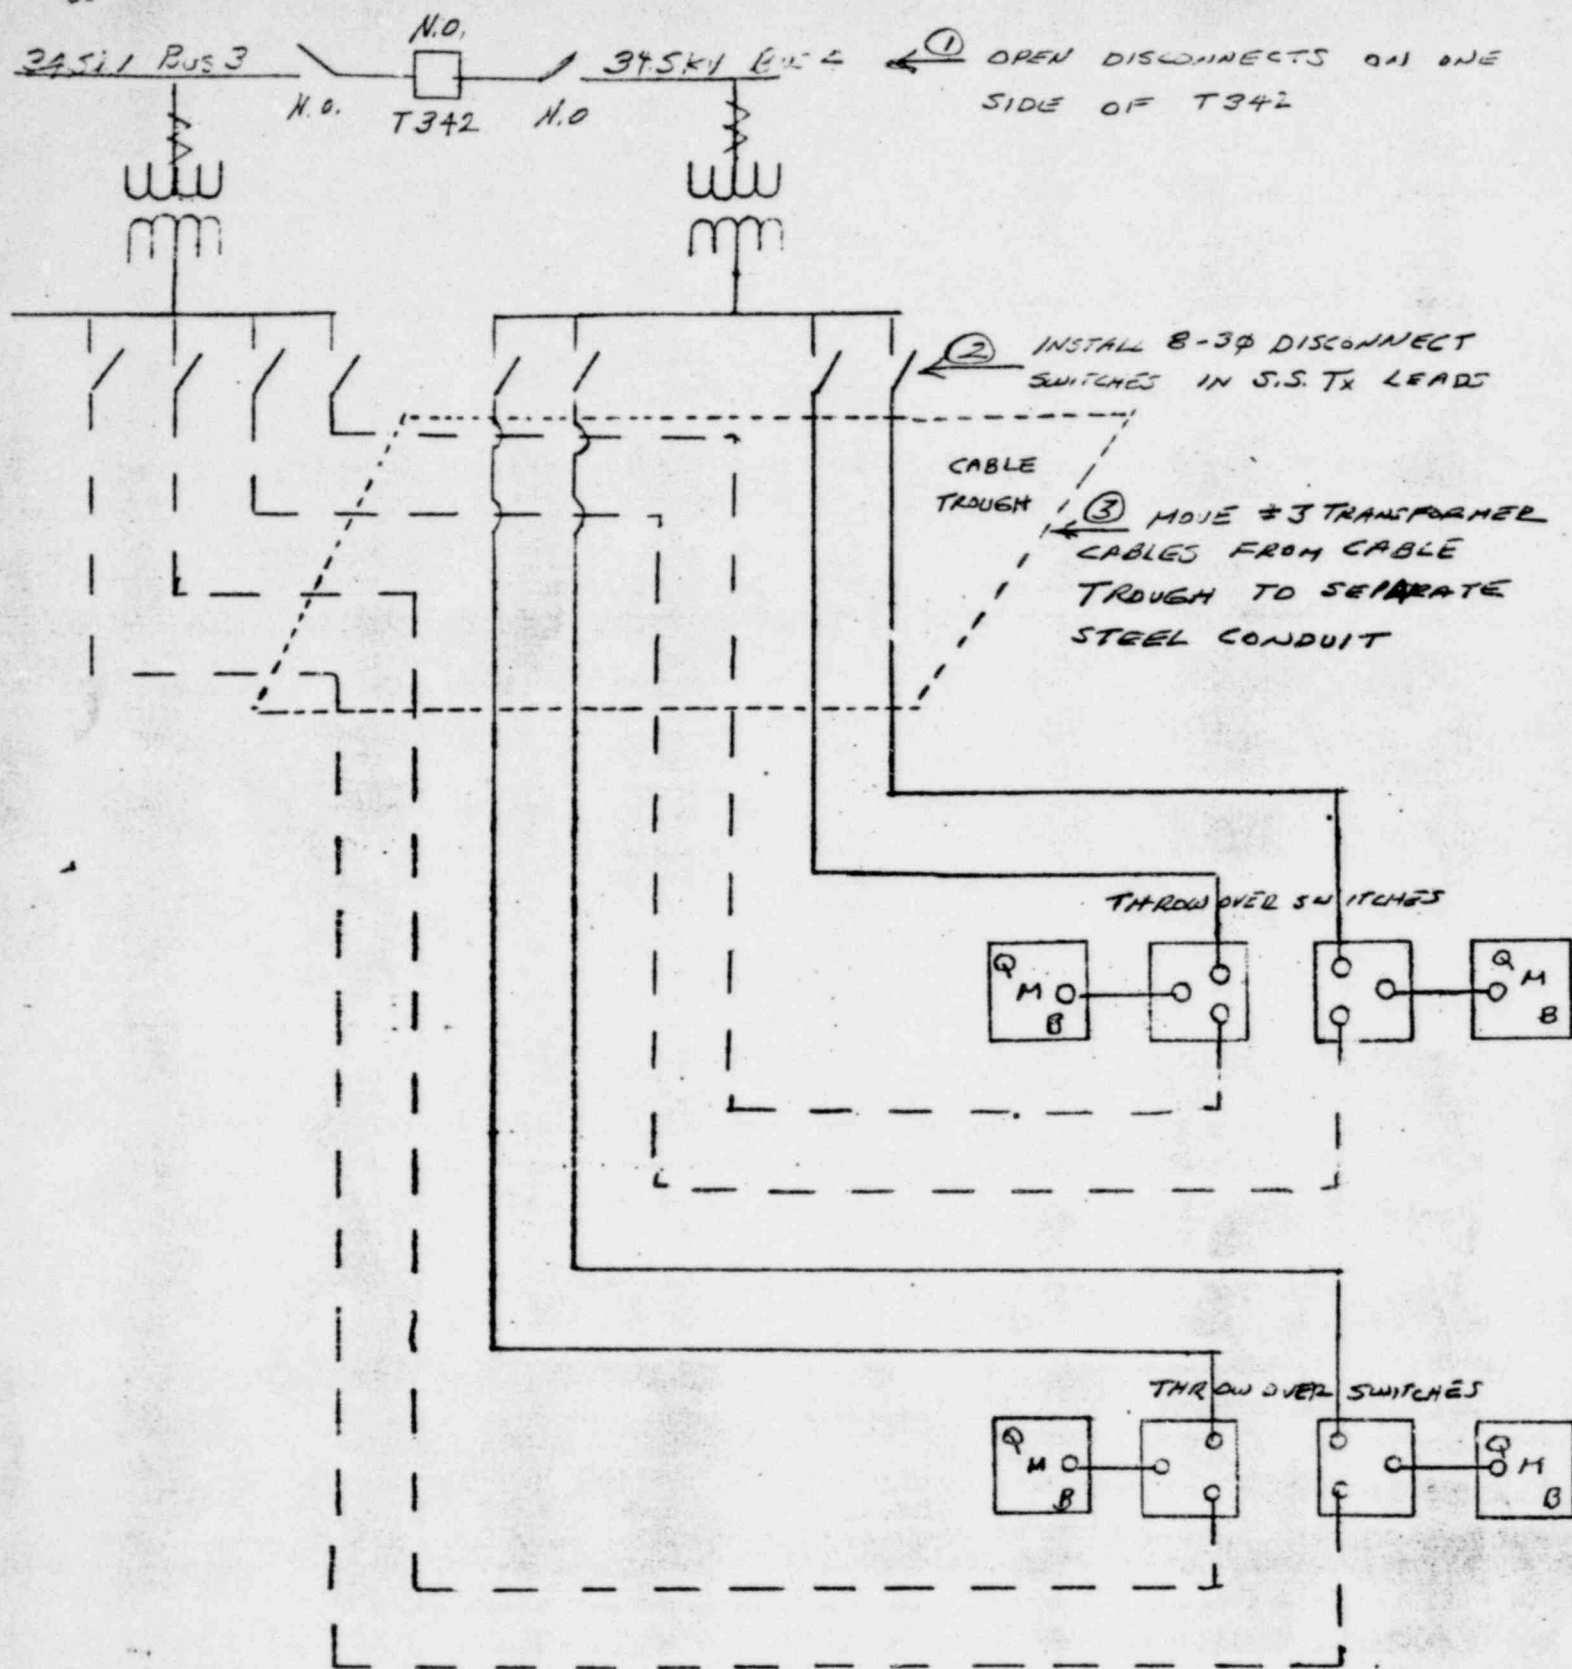 N.O.
Bus 3
34.5KV
① OPEN DISCONNECTS ON ONE
SIDE OF T342
N.O.
T342
N.O
② INSTALL 8-3φ DISCONNECT
SWITCHES IN S.S. Tx LEADS
CABLE
TROUGH
③ MOVE #3 TRANSFORMER
CABLES FROM CABLE
TROUGH TO SEPARATE
STEEL CONDUIT
THROW OVER SWITCHES
Q
M
B
Q
M
B
THROW OVER SWITCHES
Q
M
B
Q
M
B